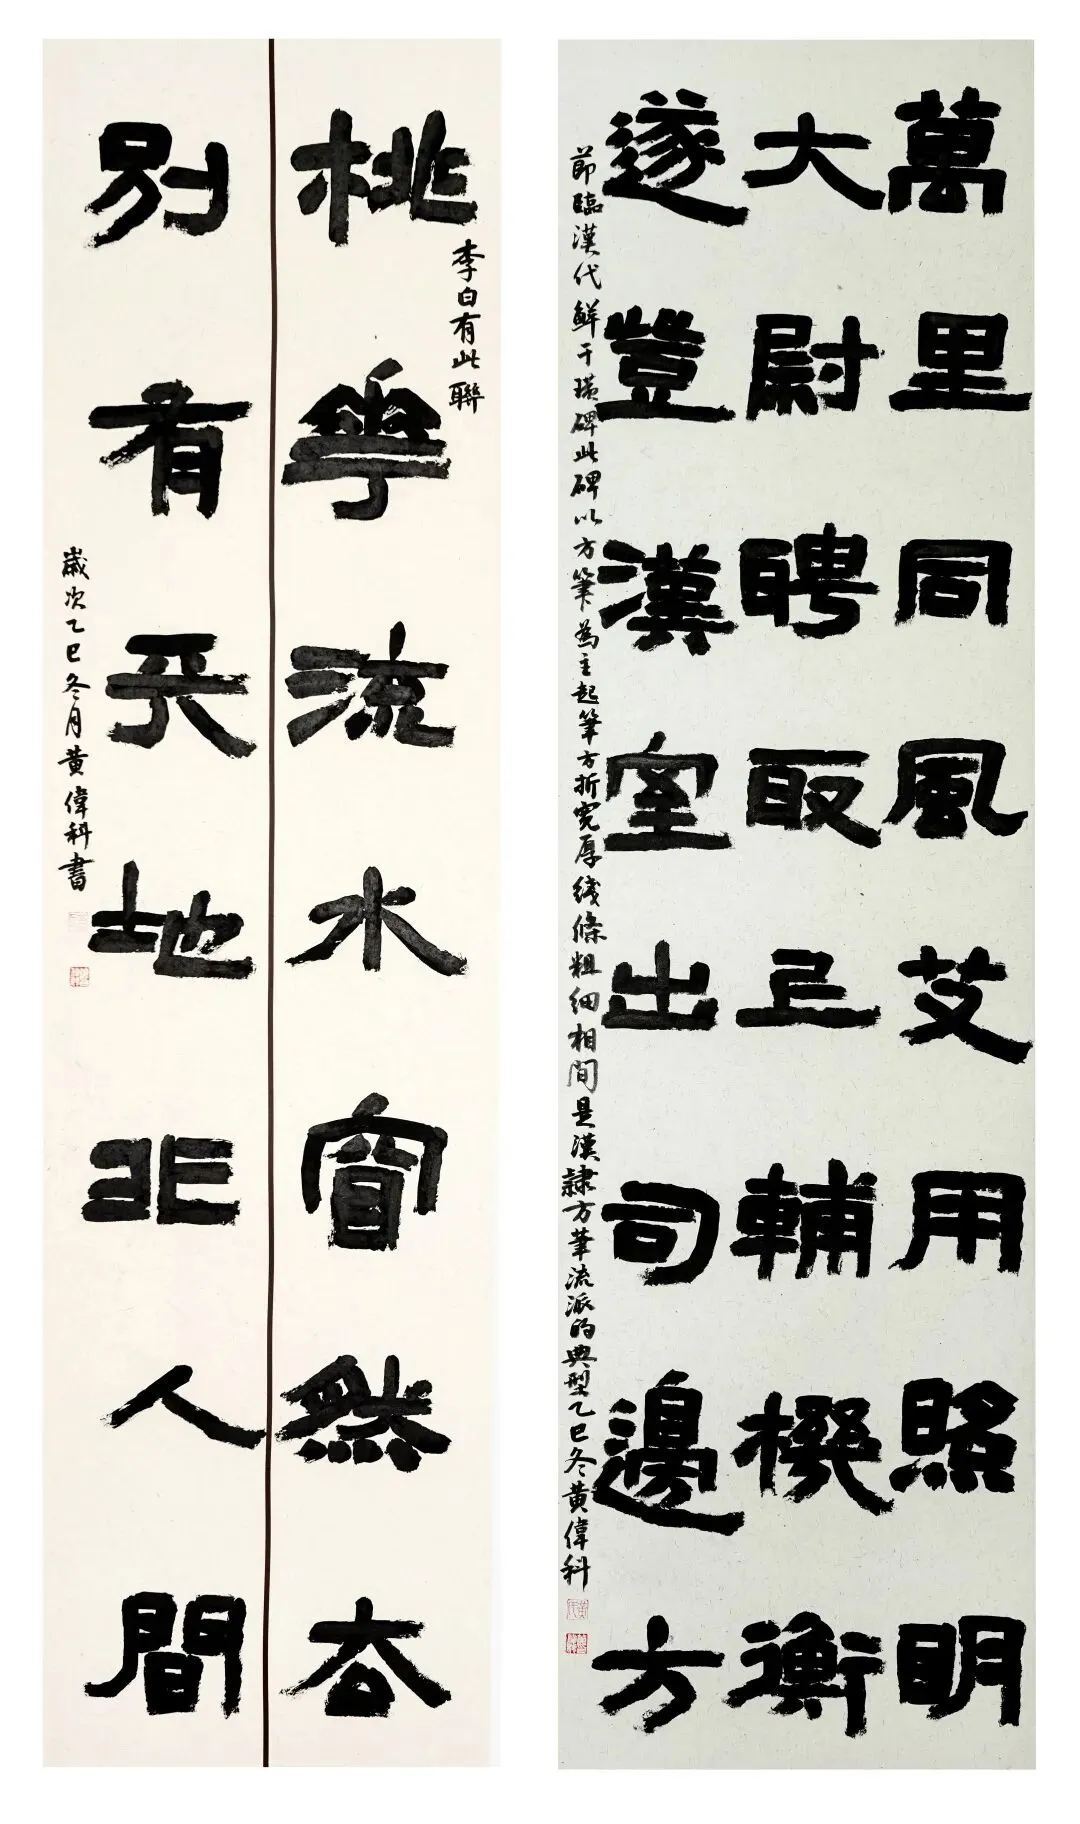 萬里同風艾用照明
大尉聘取上輔機衡
遂登漢室出司邊方
節臨漢代鮮于璜碑此碑以方筆為主起筆方折寬厚綫條粗細相間是漢隸方筆流派的典型乙巳冬黃偉科
桃華流水窅然去
李白有此聯
別有天地非人間
歲次乙巳冬月黃偉科書